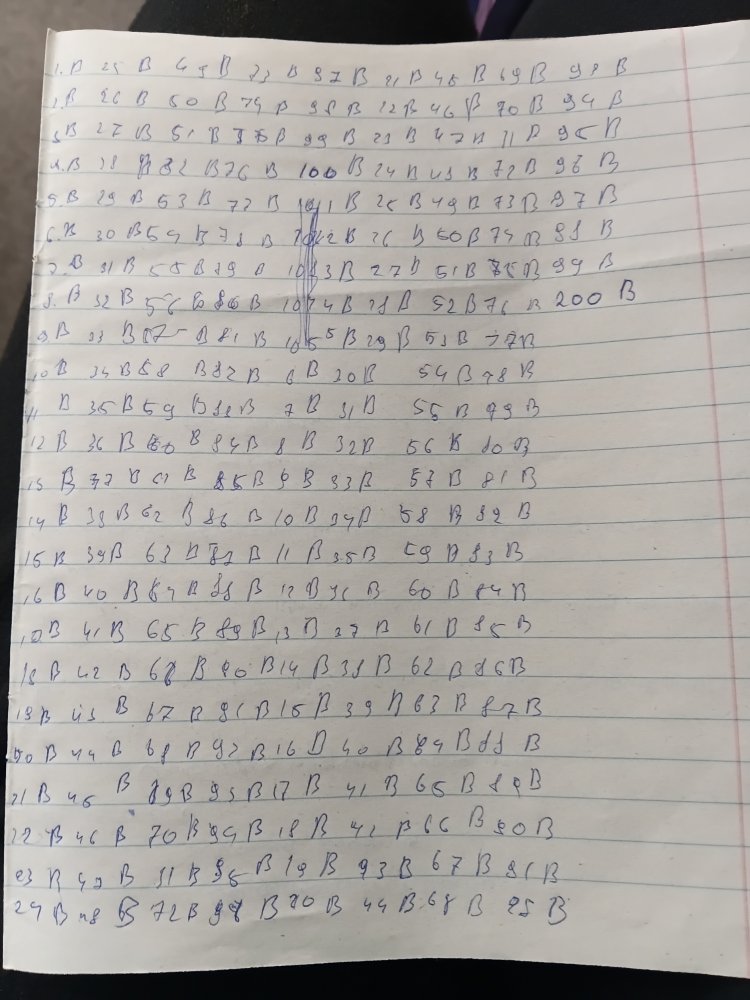 1. B 25 B 49 B 73 B 97 B 21 B 45 B 69 B 93 B
2. B 26 B 50 B 74 B 98 B 22 B 46 B 70 B 94 B
3 B 27 B 51 B 75 B 99 B 23 B 47 B 71 B 95 B
4. B 28 B 52 B 76 B 100 B 24 B 48 B 72 B 96 B
5. B 29 B 53 B 77 B 1 B 25 B 49 B 73 B 97 B
6. B 30 B 54 B 78 B 2 B 26 B 50 B 74 B 98 B
7. B 31 B 55 B 79 B 3 B 27 B 51 B 75 B 99 B
8. B 32 B 56 B 80 B 4 B 28 B 52 B 76 B 200 B
9 B 33 B 57 B 81 B 5 B 29 B 53 B 77 B
10 B 34 B 58 B 82 B 6 B 30 B 54 B 78 B
11 B 35 B 59 B 83 B 7 B 31 B 55 B 79 B
12 B 36 B 60 B 84 B 8 B 32 B 56 B 80 B
13 B 37 B 61 B 85 B 9 B 33 B 57 B 81 B
14 B 38 B 62 B 86 B 10 B 34 B 58 B 82 B
15 B 39 B 63 B 87 B 11 B 35 B 59 B 83 B
16 B 40 B 64 B 88 B 12 B 36 B 60 B 84 B
17 B 41 B 65 B 89 B 13 B 37 B 61 B 85 B
18 B 42 B 66 B 90 B 14 B 38 B 62 B 86 B
19 B 43 B 67 B 91 B 15 B 39 B 63 B 87 B
20 B 44 B 68 B 92 B 16 B 40 B 64 B 88 B
21 B 45 B 69 B 93 B 17 B 41 B 65 B 89 B
22 B 46 B 70 B 94 B 18 B 42 B 66 B 90 B
23 B 47 B 71 B 95 B 19 B 43 B 67 B 91 B
24 B 48 B 72 B 96 B 20 B 44 B 68 B 92 B